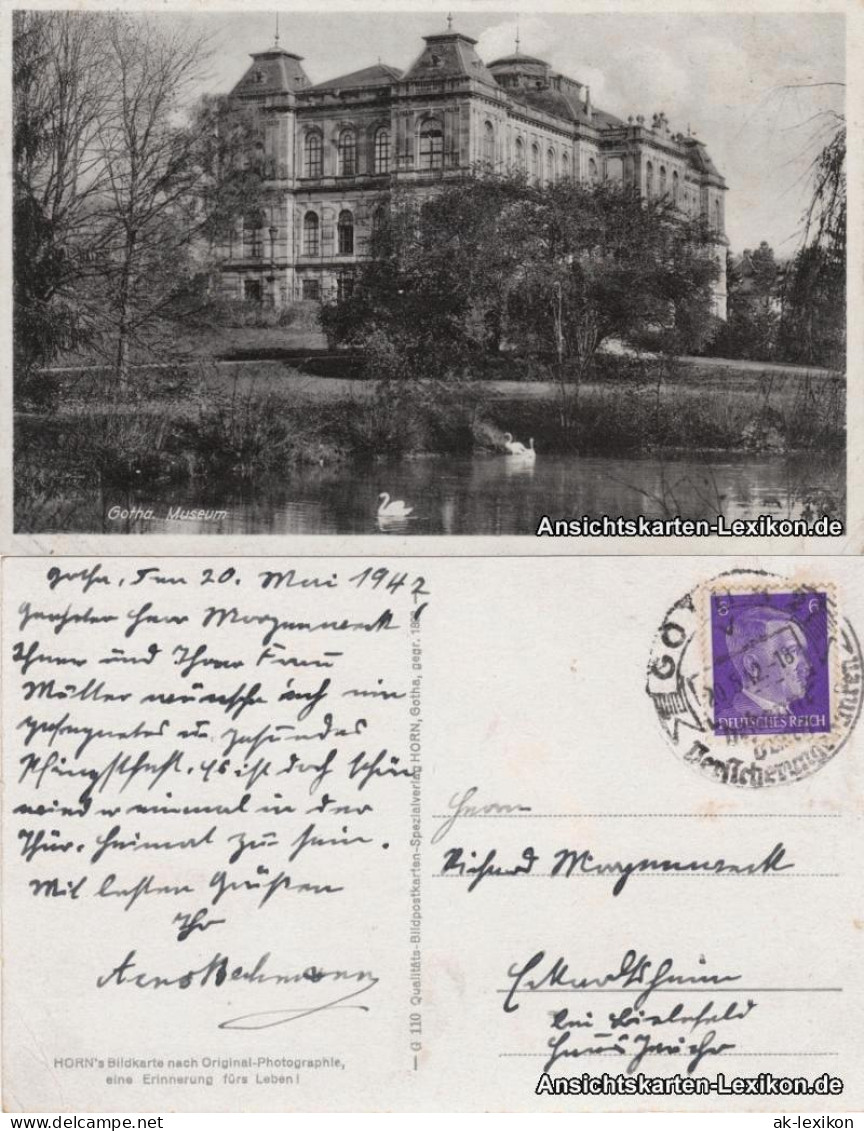 Gotha. Museum
Ansichtskarten-Lexikon.de
Gotha, den 20. Mai 1942
Geehrter Herr Morgenweck!
Ihnen und Ihrer Frau
Mutter wünsche ich ein
gesegnetes u. gesundes
Pfingstfest. Es ist doch schön
wieder einmal in der
Thür. Heimat zu sein.
Mit besten Grüßen
Ihr
Arno Bachmann
HORN's Bildkarte nach Original-Photographie,
eine Erinnerung fürs Leben!
G 110 Qualitäts-Bildpostkarten-Spezialverlag HORN, Gotha, gegr.
GOTHA
20.5.42.-18
6 6
DEUTSCHES REICH
Herrn
Richard Morgenweck
Eckardtsheim
bei Bielefeld
Haus
Ansichtskarten-Lexikon.de
www.delcampe.net
ak-lexikon